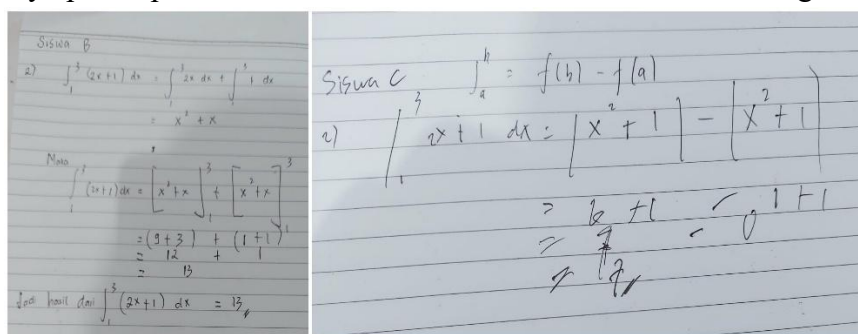 Siswa B
2) ∫₁³ (2x+1) dx = ∫₁³ 2x dx + ∫₁³ 1 dx
= x² + x
Maka
∫₁³ (2x+1) dx = [x²+x]₁³ + [x²+x]₁³
= (9+3) + (1+1)
= 12 + 1
= 13
Jadi hasil dari ∫₁³ (2x+1) dx = 13
Siswa C ∫ₐᵇ = f(b) - f(a)
2) ∫₁³ 2x+1 dx = [x²+1] - [x²+1]
= 6+1 - 1+1